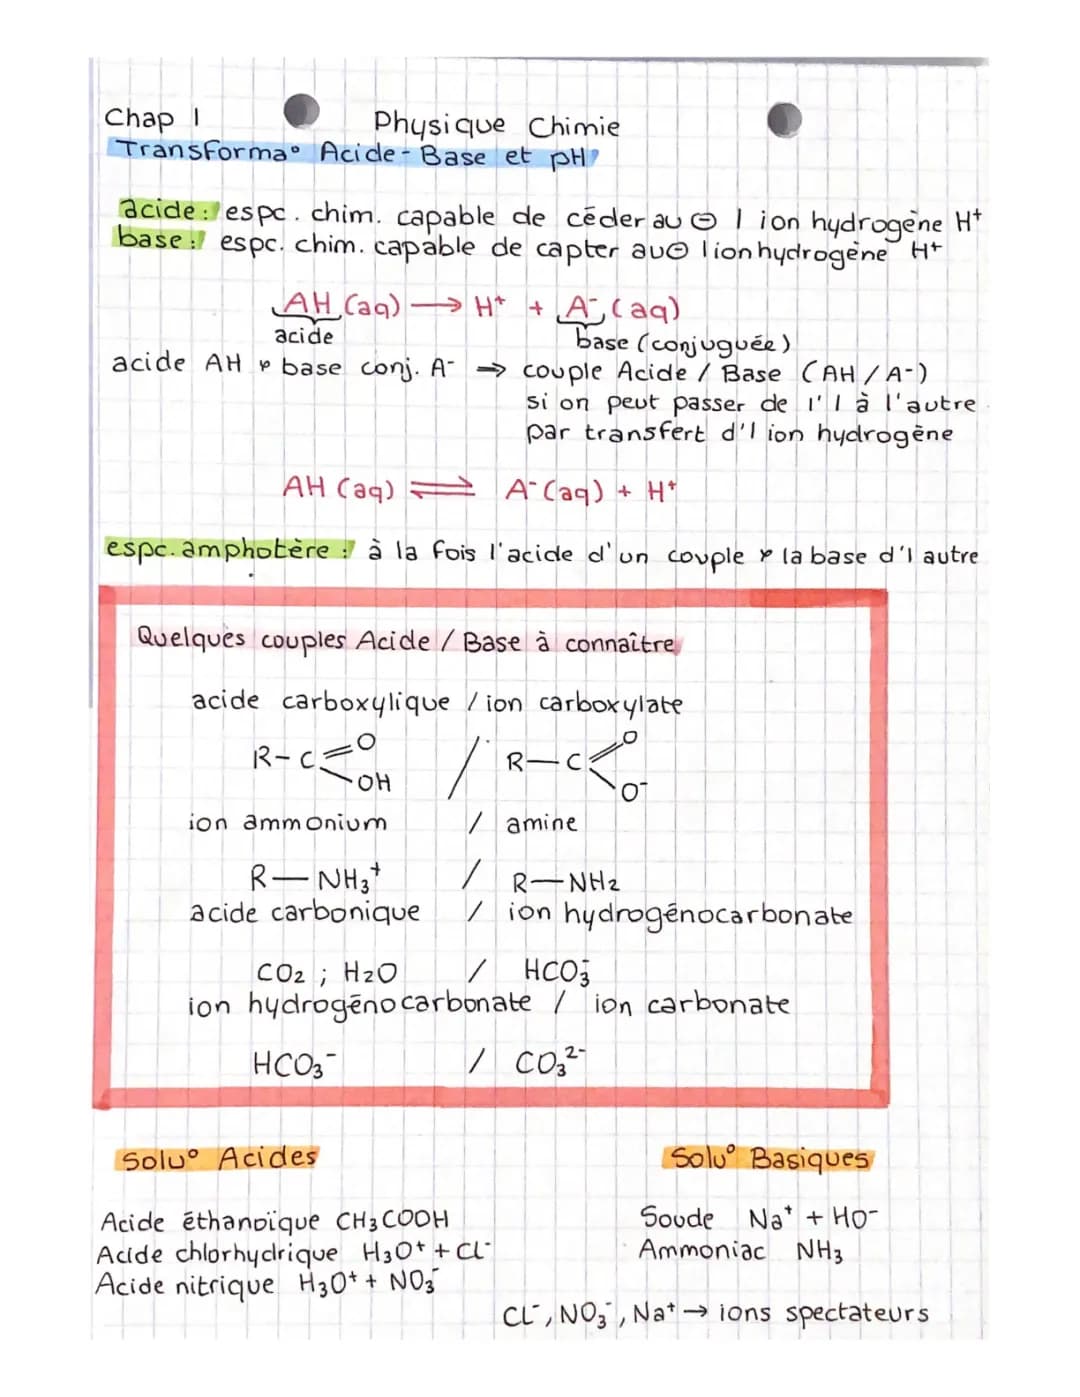 Chap 1 Physique Chimie
Transforma° Acide-Base et pH
acide : espc. chim. capable de céder au ⊖ 1 ion hydrogène H⁺
base : espc. chim. capable de capter au ⊖ 1 ion hydrogène H⁺
AH (aq) → H⁺ + A⁻ (aq)
acide base (conjuguée)
acide AH & base conj. A⁻ ⇒ couple Acide / Base (AH / A⁻)
si on peut passer de l'1 à l'autre
par transfert d'1 ion hydrogène
AH (aq) ⇌ A⁻ (aq) + H⁺
espc. amphotère : à la fois l'acide d'un couple & la base d'1 autre
Quelques couples Acide / Base à connaître
acide carboxylique / ion carboxylate
R-C=O OH / R-C=O O⁻
ion ammonium / amine
R-NH₃⁺ / R-NH₂
acide carbonique / ion hydrogénocarbonate
CO₂ ; H₂O / HCO₃⁻
ion hydrogénocarbonate / ion carbonate
HCO₃⁻ / CO₃²⁻
Solu° Acides Solu° Basiques
Acide éthanoïque CH₃COOH Soude Na⁺ + HO⁻
Acide chlorhydrique H₃O⁺ + Cl⁻ Ammoniac NH₃
Acide nitrique H₃O⁺ + NO₃⁻
Cl⁻, NO₃⁻, Na⁺ → ions spectateurs